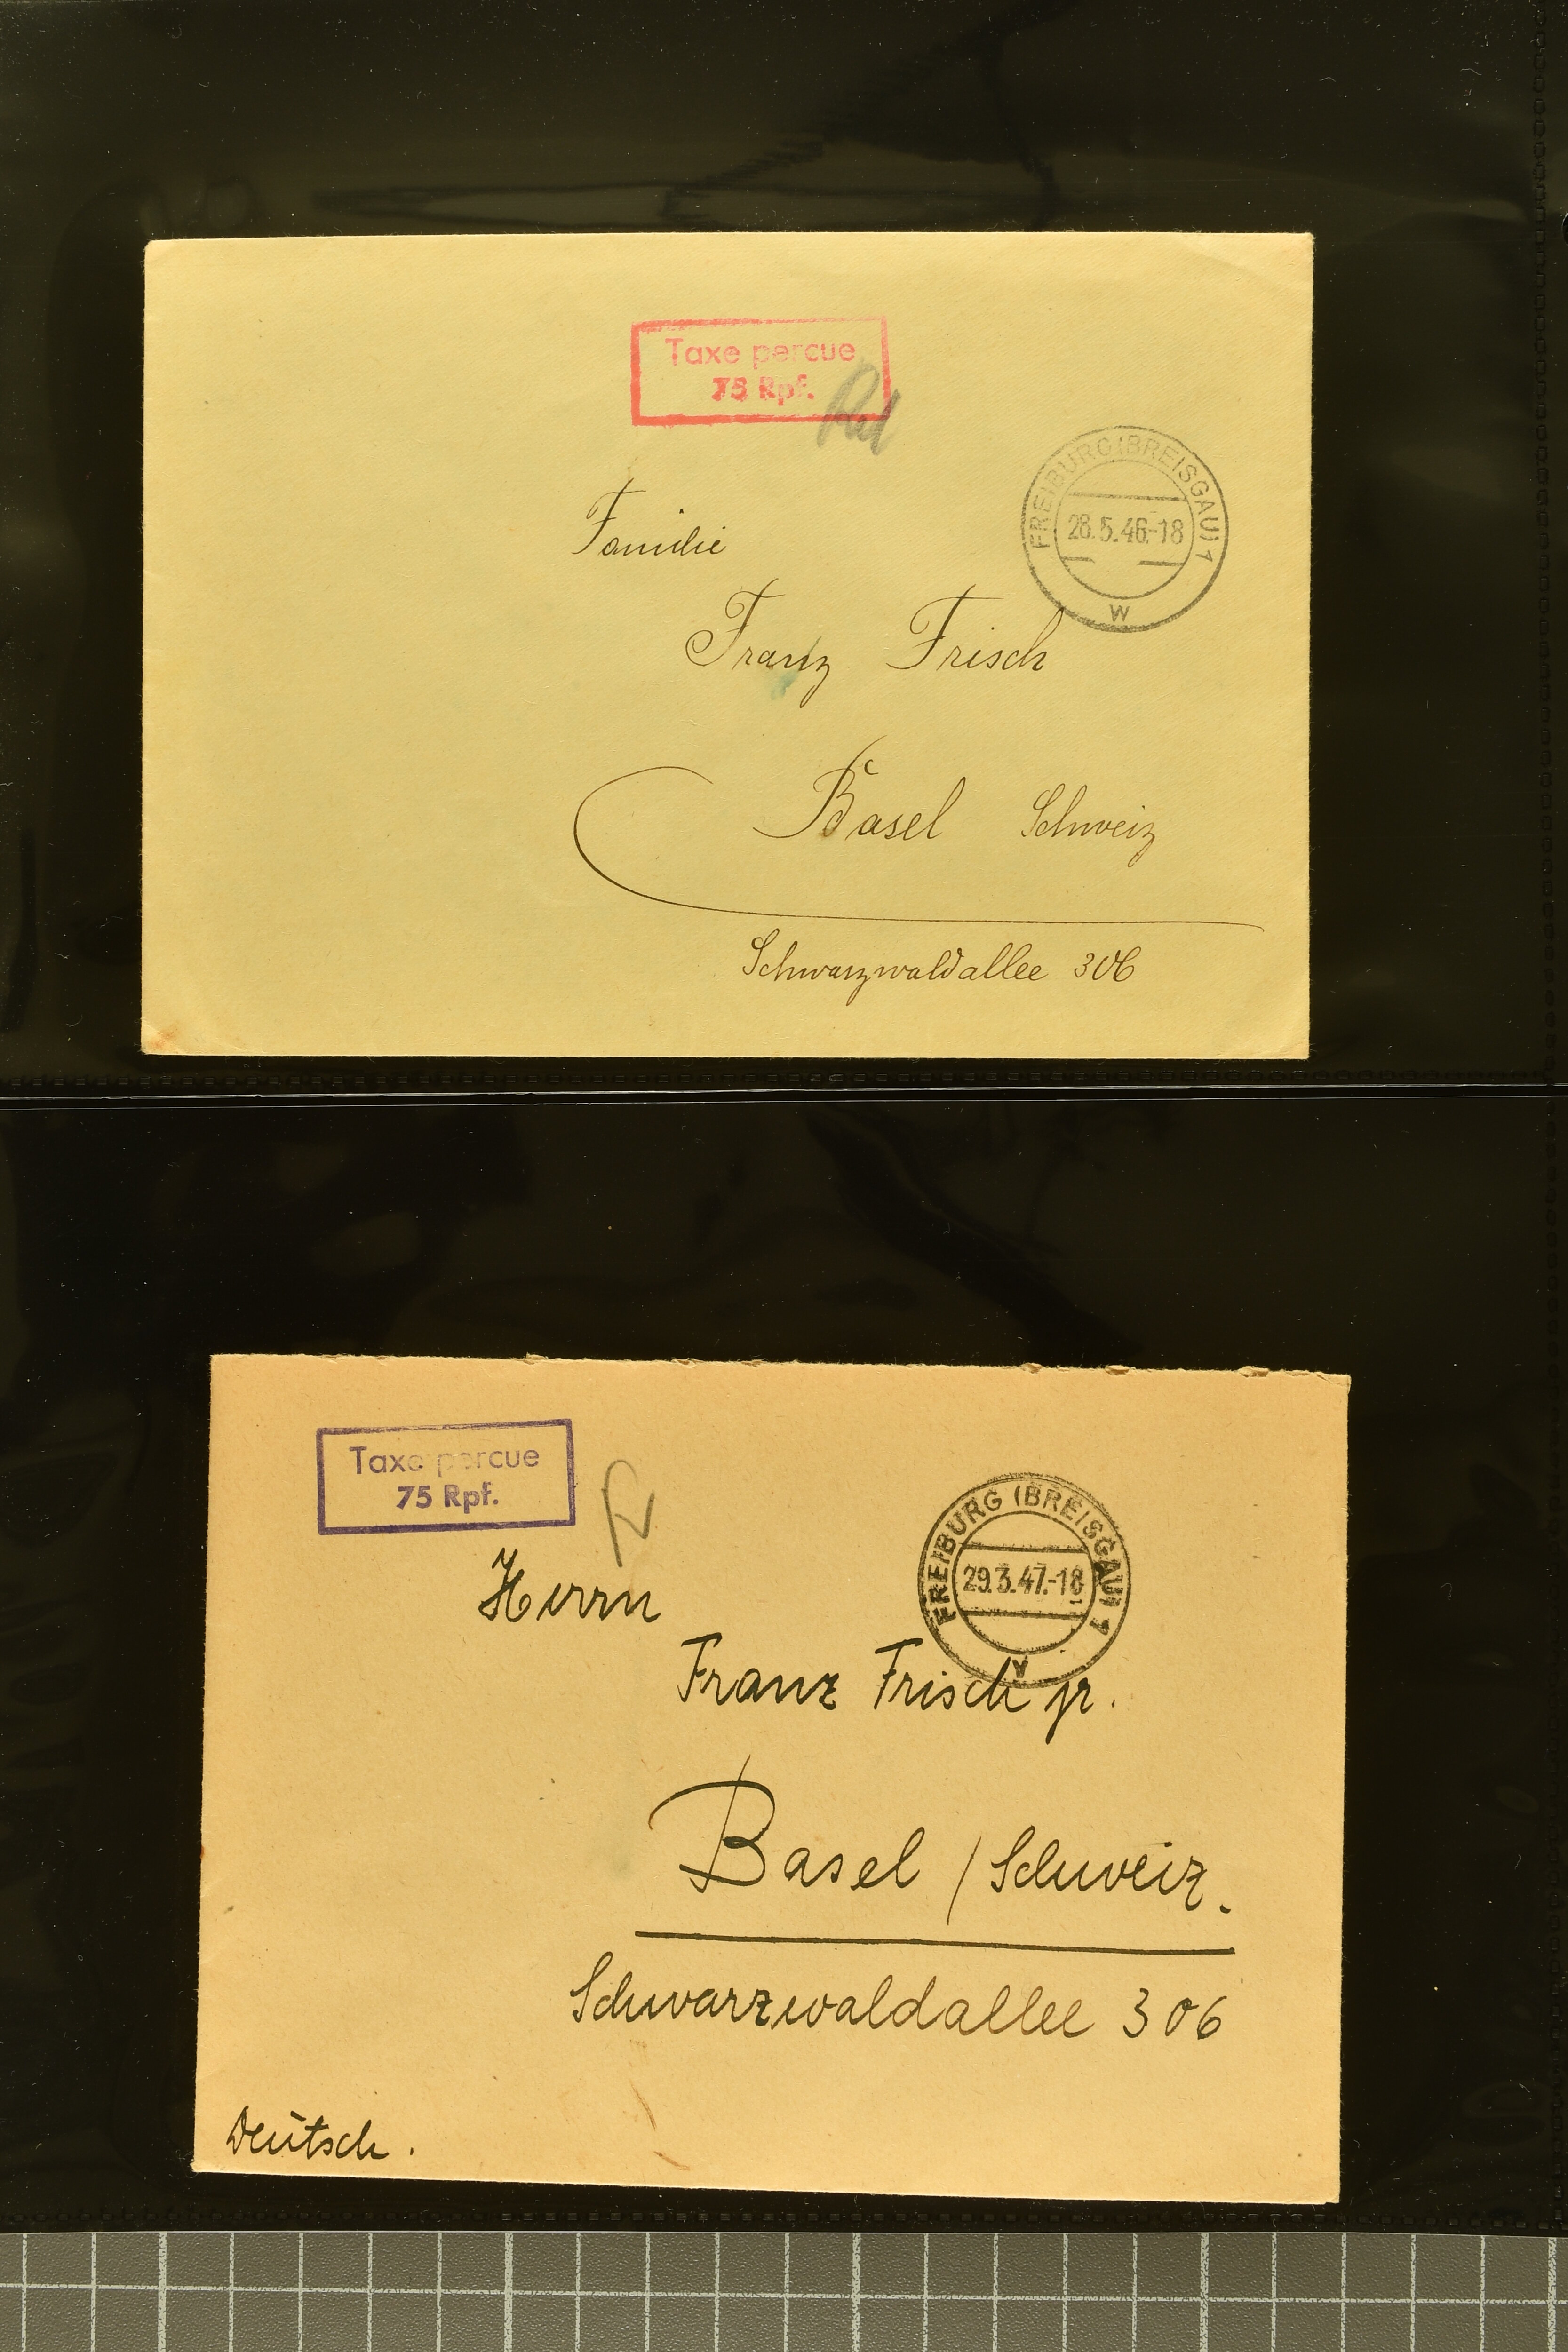 Taxe percue
75 Rpf.
FREIBURG (BREISGAU) 1
28.5.46.-18
w
Familie
Franz Frisch
Basel Schweiz
Schwarzwaldallee 306
Taxe percue
75 Rpf.
FREIBURG (BREISGAU) 1
29.3.47.-18
v
Herrn
Franz Frisch jr.
Basel / Schweiz.
Schwarzwaldallee 306
Deutsch.